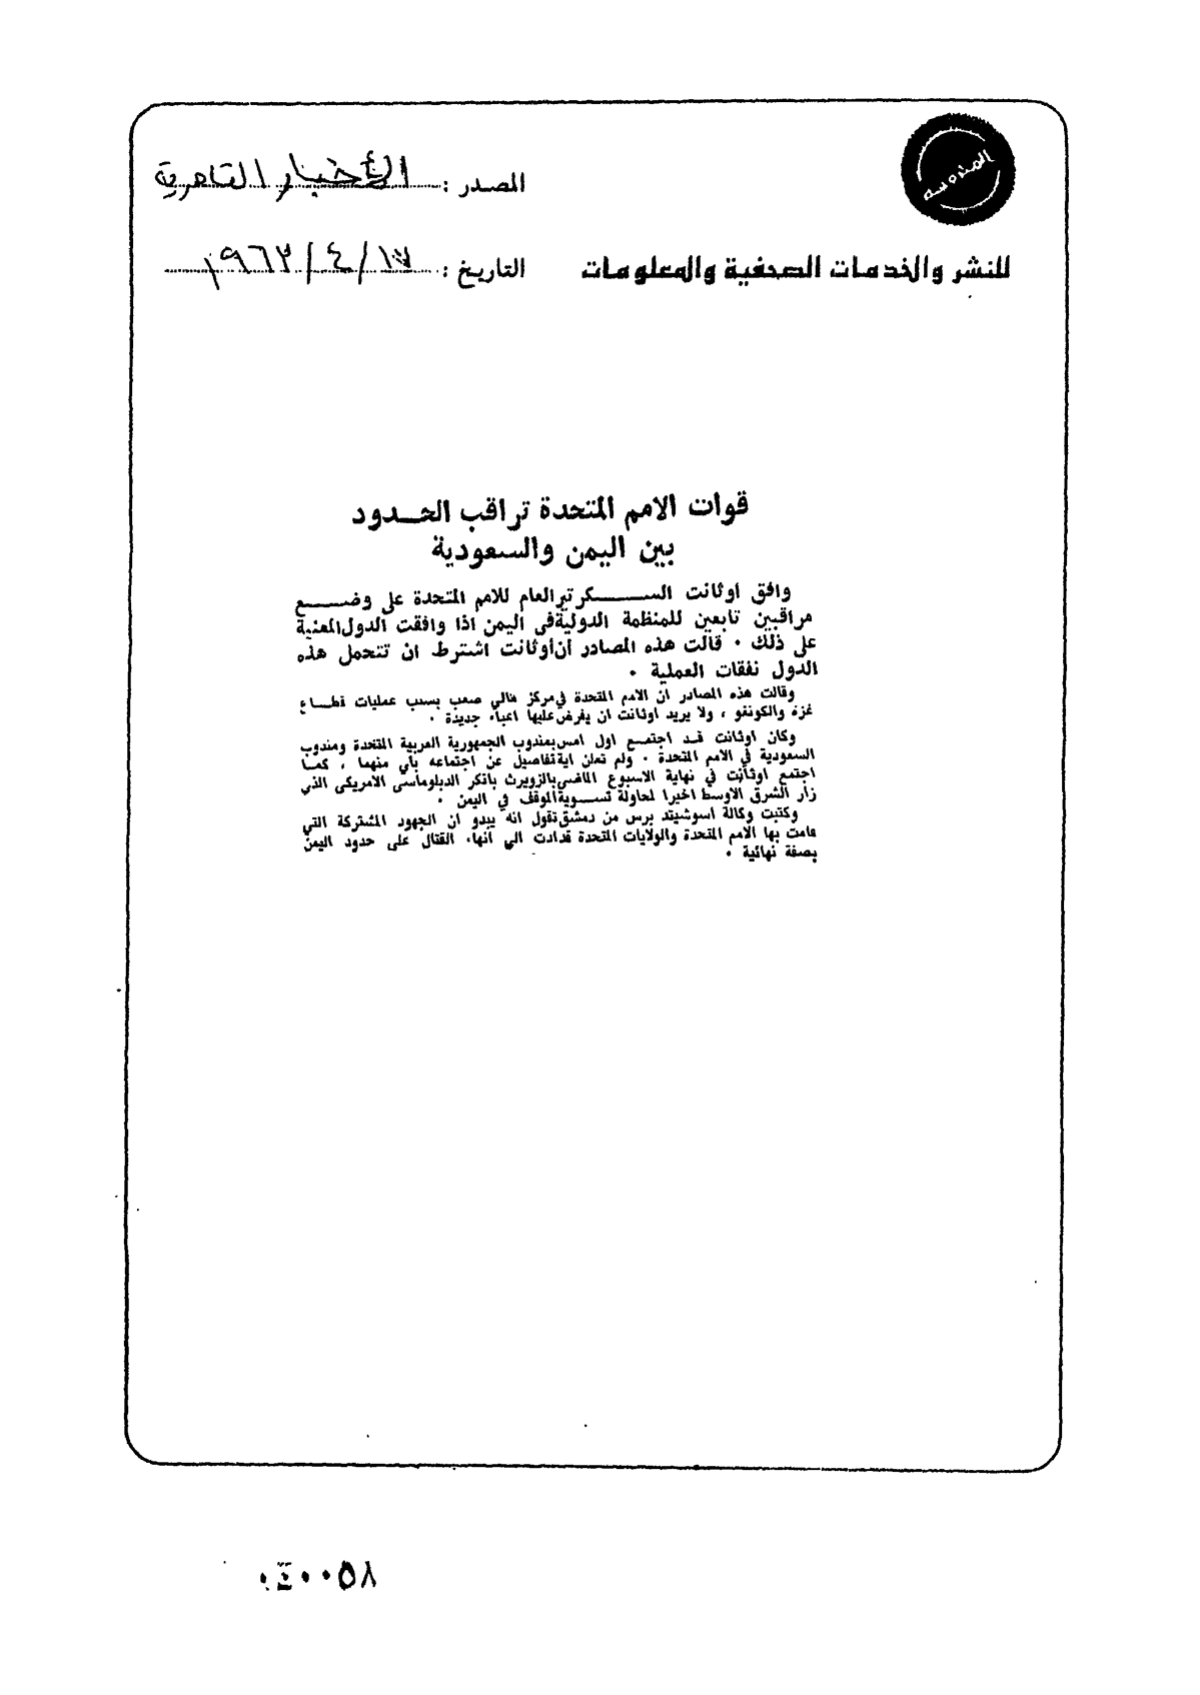 المندوسه
المصدر : الأخبار القاهرية
للنشر والخدمات الصحفية والمعلومات
التاريخ : ١٩٦٣/٤/١٧
قوات الامم المتحدة تراقب الحدود
بين اليمن والسعودية
وافق اوثانت السكرتير العام للامم المتحدة على وضع
مراقبين تابعين للمنظمة الدولية فى اليمن اذا وافقت الدول المعنية
على ذلك . قالت هذه المصادر ان أوثانت اشترط ان تتحمل هذه
الدول نفقات العملية .
وقالت هذه المصادر ان الامم المتحدة في مركز مالي صعب بسبب عمليات قطاع
غزة والكونغو ، ولا يريد اوثانت ان يفرض عليها اعباء جديدة .
وكان اوثانت قد اجتمع اول امس بمندوب الجمهورية العربية المتحدة ومندوب
السعودية في الامم المتحدة . ولم تعلن اية تفاصيل عن اجتماعه بأي منهما ، كما
اجتمع اوثانت في نهاية الاسبوع الماضى بالزويرث بانكر الدبلوماسى الامريكى الذي
زار الشرق الاوسط اخيرا لمحاولة تسوية الموقف في اليمن .
وكتبت وكالة اسوشيتد برس من دمشق تقول انه يبدو ان الجهود المشتركة التي
قامت بها الامم المتحدة والولايات المتحدة قد ادت الى انهاء القتال على حدود اليمن
بصفة نهائية .
٠٤٠٠٥٨